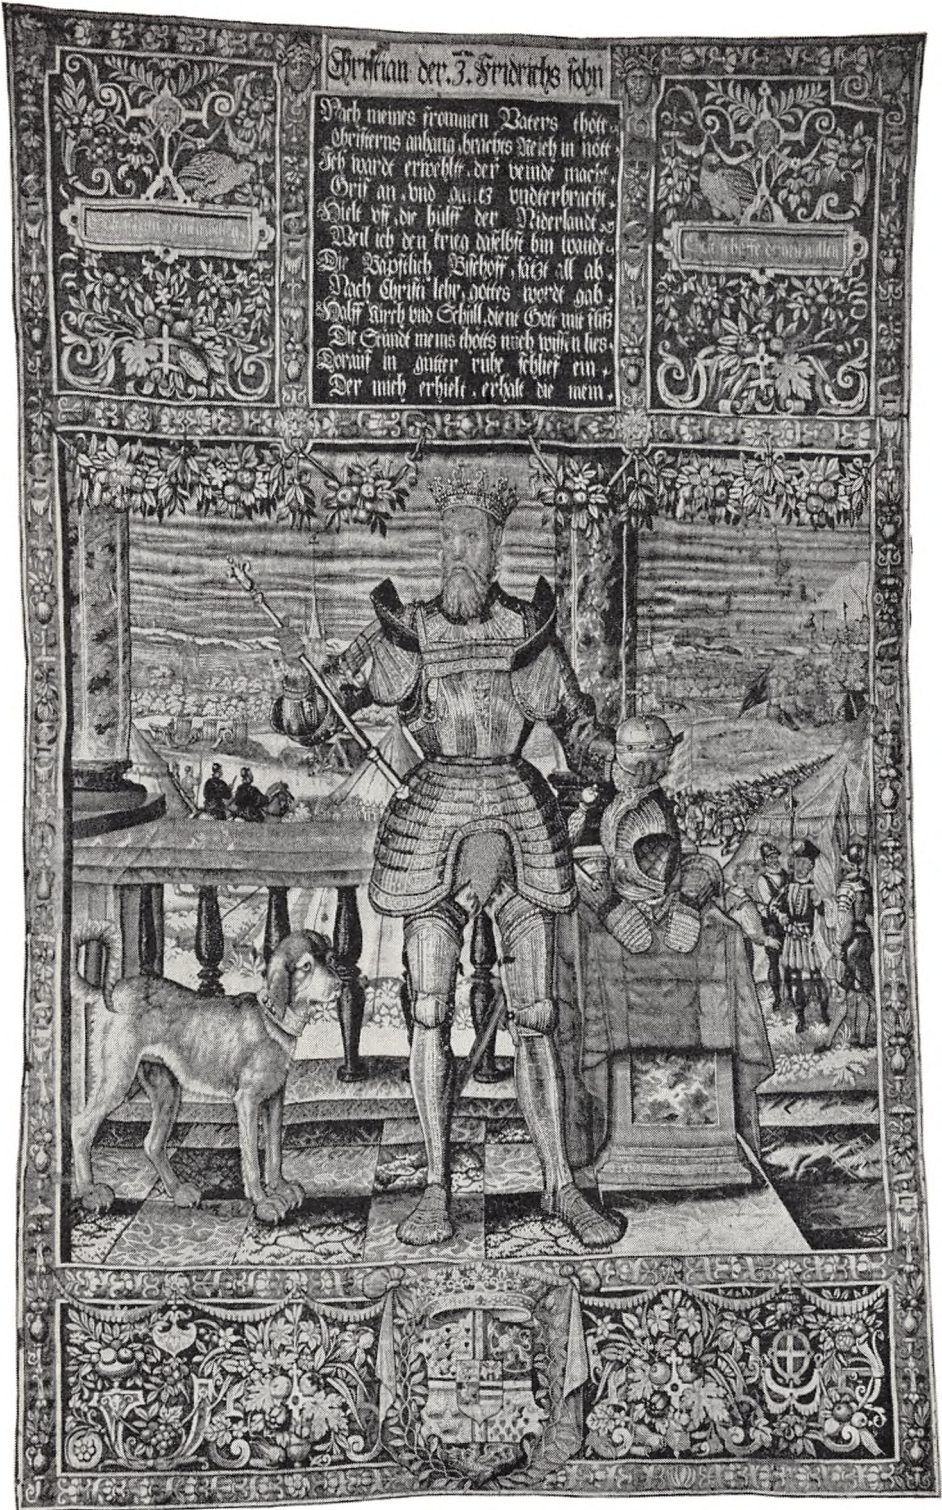 Christian der. 3. Fridrichs sohn
Nach meines frommen Vaters thott
Christierns anhang, bracht's Reich in nott.
Ich ward erwehltt, der veinde macht,
Grif an, vnd gantz vndterbracht.
Hielt vff, die hülff der Niderlandt,
Weil ich den krieg daselbst hin wandt.
Die Bäpstlich Bischoff, satzt all ab,
Nach Christi lehr, gottes wordt gab.
Halff Kirch vnd Schull, dient Gott mit fliß
Die Stunde meins thotts mich wissen lies.
Dorauf in gutter ruhe schlieff ein.
Der mich erhielt, erhalt die mein.